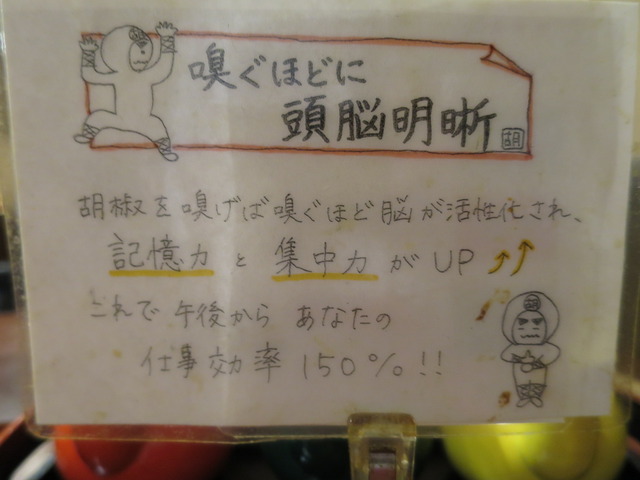 嗅ぐほどに
頭脳明晰 胡
胡椒を嗅げば嗅ぐほど脳が活性化され、
記憶力と集中力がUP↑↑
これで午後からあなたの
仕事効率150%!!